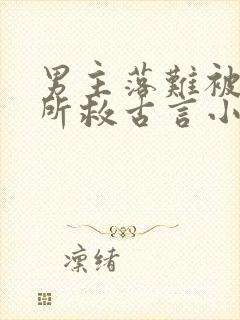 男主落難被
所救古言小
凛绪